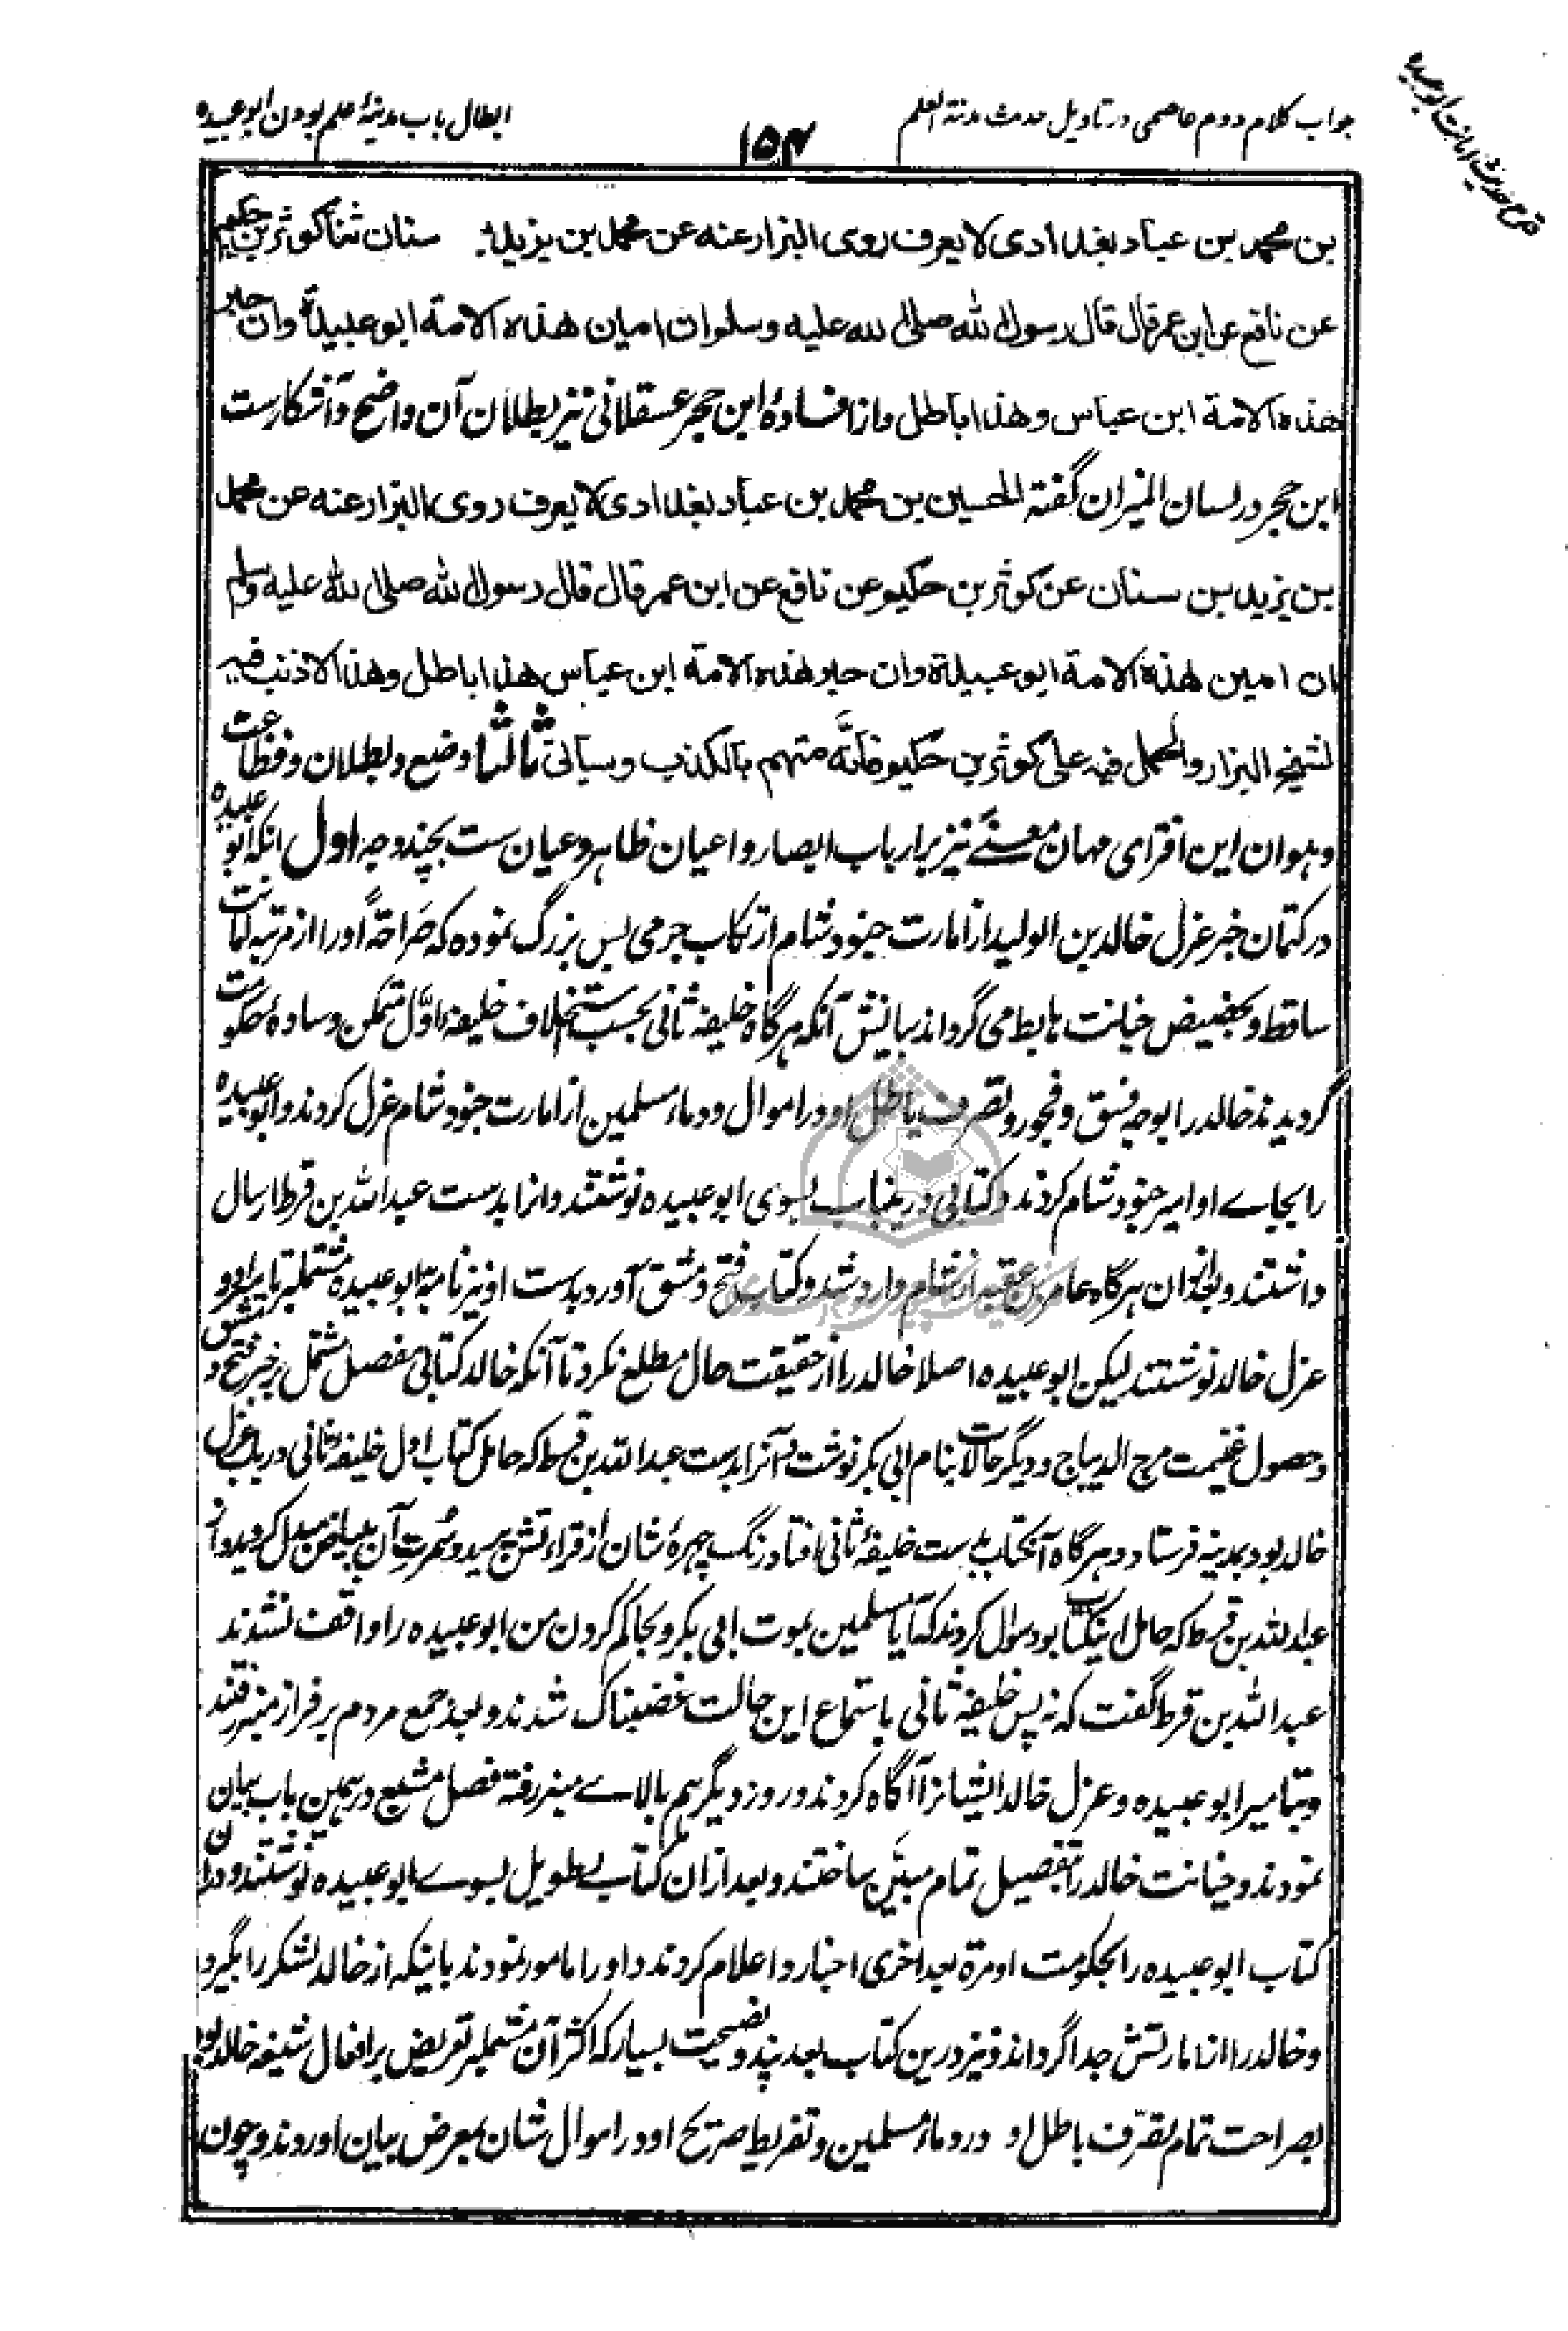 جواب کلام دوم عاصمی در تاویل حدیث مدینة العلم
ابطال باب مدینهٔ علم بودن ابو عبیده
قدح حدیث امانت ابو عبیده
۱۵۴
بن محمد بن عباد بغدادی لا یعرف روی البزار عنه عن محمد بن یزید بن سنان ثنا کوثر بن حکیم
عن نافع عن ابن عمر قال قال رسول الله صلی الله علیه وسلم ان امین هذه الامة ابو عبیدة وان حبر
هذه الامة ابن عباس وهذا باطل واز افادهٔ ابن حجر عسقلانی نیز بطلان آن واضح و آشکارست
ابن حجر در لسان المیزان گفته الحسین بن محمد بن عباد بغدادی لا یعرف روی البزار عنه عن محمد
بن یزید بن سنان عن کوثر بن حکیم عن نافع عن ابن عمر قال قال رسول الله صلی الله علیه وسلم
ان امین هذه الامة ابو عبیدة وان حبر هذه الامة ابن عباس هذا باطل وهذا لا ذنب فیه
لشیخ البزار والحمل فیه علی کوثر بن حکیم فانه متهم بالکذب وسیاتی ثالثا وضع و بطلان و فظاعت
و هوان این افترای مهان معنے نیز بر ارباب ابصار و اعیان ظاهر و عیان ست بچند وجه اول آنکه ابو عبیده
در کتمان خبر عزل خالد بن الولید از امارت جنود شام ارتکاب جرمی بس بزرگ نموده که صراحةً او را از مرتبه امانت
ساقط و بحضیض خیانت هابط می گرداند بیانش آنکه هرگاه خلیفهٔ ثانی بحسب استخلاف خلیفهٔ اوّل متمکن وسادهٔ حکومت
گردیدند خالد را بوجه فسق و فجور و تصرف باطل او در اموال و دماء مسلمین از امارت جنود شام عزل کردند و ابو عبیده
را بجاے او امیر جنود شام کردند و کتابی درینباب بسوی ابو عبیده نوشتند و آنرا بدست عبد الله بن قرط ارسال
داشتند و بعد ازان هرگاه عامر بن عقبه از شام وارد شد و کتاب فتح دمشق آورد بدست او نیز نامه بابو عبیده مشتملبر تامیر او و
عزل خالد نوشتند لیکن ابو عبیده اصلا خالد را از حقیقت حال مطلع نکرد تا آنکه خالد کتابی مفصل مشتمل بر خبر فتح دمشق
و حصول غنیمت مرج الدیباج و دیگر حالات بنام ابی بکر نوشت و آنرا بدست عبد الله بن قرط که حامل کتاب اول خلیفهٔ ثانی در باب عزل
خالد بود بمدینه فرستاد و هرگاه آنکتاب بدست خلیفهٔ ثانی افتاد رنگ چهرهٔ شان از قراءتش پرید و سُمرت آن ببیاض مبدل گردید و از
عبد الله بن قرط که حامل اینکتاب بود سؤال کردند که آیا مسلمین بموت ابی بکر و بحاکم کردن من ابو عبیده را واقف نشدند
عبد الله بن قرط گفت که نه پس خلیفهٔ ثانی باستماع این حالت غضبناک شدند و بعد جمع مردم بر فراز منبر رفتند
و بتامیر ابو عبیده و عزل خالد ایشانرا آگاه کردند و روز دیگر هم بالاے منبر رفته فصل مشبع در همین باب بیان
نمودند و خیانت خالد را بتفصیل تمام مبیّن ساختند و بعد ازان کتاب طویل بسوے ابو عبیده نوشتند و دران
کتاب ابو عبیده را بحکومت او مرة بعد اخری اخبار و اعلام کردند و او را مامور نمودند باینکه از خالد لشکر را بگیرد
و خالد را از امارتش جدا گرداند و نیز درین کتاب بعد پند و نصیحت بسیار که اکثر آن مشتملبر تعریض بر افعال شنیعهٔ خالد بود
بصراحت تمام تصرّف باطل او در دماء مسلمین و تفریط صریح او در اموال شان بمعرض بیان آوردند و چون